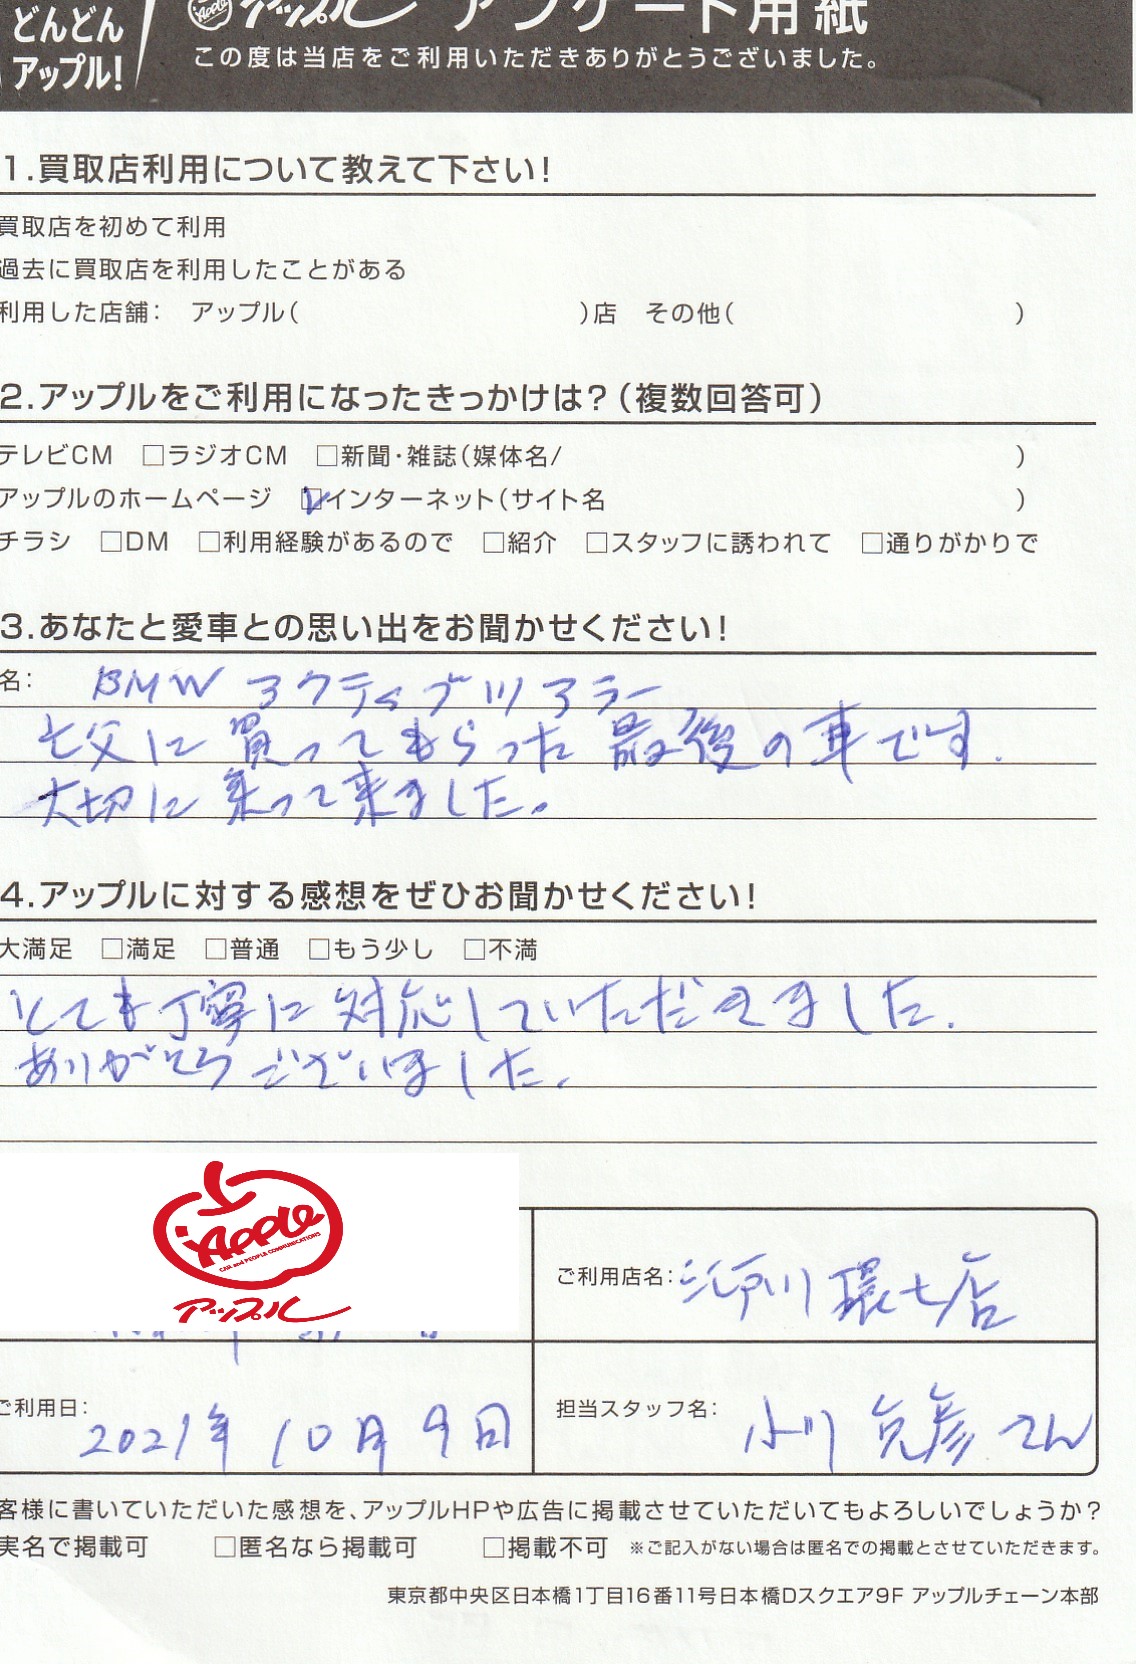 どんどん
アップル!
Apple アップル アンケート用紙
この度は当店をご利用いただきありがとうございました。
1.買取店利用について教えて下さい!
買取店を初めて利用
過去に買取店を利用したことがある
利用した店舗: アップル( )店 その他( )
2.アップルをご利用になったきっかけは?(複数回答可)
テレビCM □ラジオCM □新聞・雑誌(媒体名/ )
アップルのホームページ ☑インターネット(サイト名 )
チラシ □DM □利用経験があるので □紹介 □スタッフに誘われて □通りがかりで
3.あなたと愛車との思い出をお聞かせください!
名: BMW アクティブツアラー
亡父に買ってもらった最後の車です.
大切に乗って来ました。
4.アップルに対する感想をぜひお聞かせください!
大満足 □満足 □普通 □もう少し □不満
とても丁寧に対応していただきました.
ありがとうございました.
Apple
CAR and PEOPLE COMMUNICATIONS
アップル
ご利用店名: 江戸川環七店
ご利用日: 2021年10月9日
担当スタッフ名: 小川克彦さん
客様に書いていただいた感想を、アップルHPや広告に掲載させていただいてもよろしいでしょうか?
実名で掲載可 □匿名なら掲載可 □掲載不可 ※ご記入がない場合は匿名での掲載とさせていただきます。
東京都中央区日本橋1丁目16番11号日本橋Dスクエア9F アップルチェーン本部